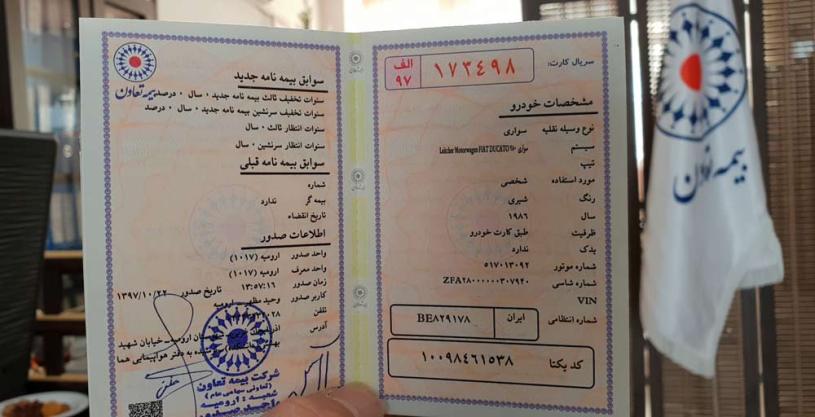 سریال کارت:
الف
۹۷
۱۷۳۴۹۸
مشخصات خودرو
نوع وسیله نقلیه سواری
سیستم سواری Leichter Motorwagen FIAT DUCATO
تیپ
مورد استفاده شخصی
رنگ شیری
سال ۱۹۸۶
ظرفیت طبق کارت خودرو
یدک ندارد
شماره موتور ۵۱۷۰۱۳۰۹۲
شماره شاسی ZFA۲۸۰۰۰۰۰۰۳۰۷۹۲۰
VIN
شماره انتظامی ایران BE۸۲۹۱۷۸
کد یکتا ۱۰۰۹۸۴۶۱۵۳۸
بیمه تعاون
سوابق بیمه نامه جدید
سنوات تخفیف ثالث بیمه نامه جدید ۰ سال ۰ درصد
سنوات تخفیف سرنشین بیمه نامه جدید ۰ سال ۰ درصد
سنوات انتظار ثالث ۰ سال
سنوات انتظار سرنشین ۰ سال
سوابق بیمه نامه قبلی
شماره
بیمه گر ندارد
تاریخ انقضاء
اطلاعات صدور
واحد صدور ارومیه (۱۰۱۷)
واحد معرف ارومیه (۱۰۱۷)
زمان صدور ۱۳:۵۷:۱۶ تاریخ صدور ۱۳۹۷/۱۰/۲۲
کاربر صدور وحید ارومیه
تلفن
آدرس ارومیه-خیابان شهید
به دفتر هواپیمایی هما
شرکت بیمه تعاون
(تعاونی سهامی عام)
شعبه: ارومیه
واحد صدور
بیمه تعاون